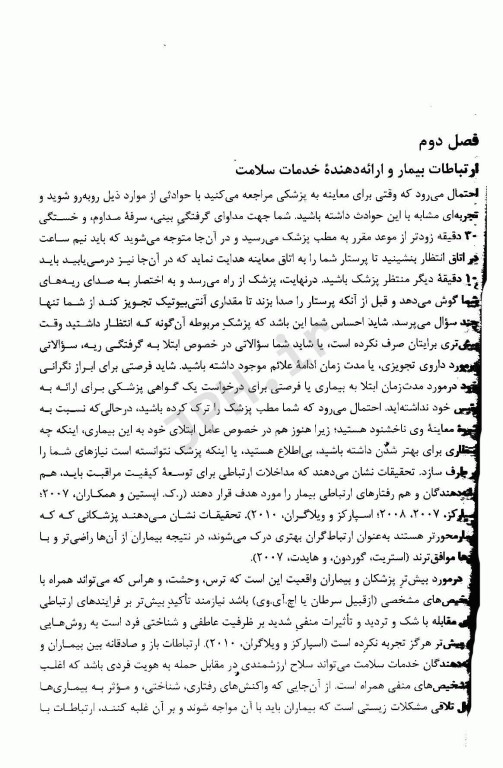 فصل دوم
ارتباطات بیمار و ارائه‌دهندهٔ خدمات سلامت
احتمال می‌رود که وقتی برای معاینه به پزشکی مراجعه می‌کنید با حوادثی از موارد ذیل روبه‌رو شوید و
تجربه‌ای مشابه با این حوادث داشته باشید. شما جهت مداوای گرفتگیِ بینی، سرفهٔ مداوم، و خستگی
۳۰ دقیقه زودتر از موعد مقرر به مطب پزشک می‌رسید و در آن‌جا متوجه می‌شوید که باید نیم ساعت
در اتاق انتظار بنشینید تا پرستار شما را به اتاق معاینه هدایت نماید که در آن‌جا نیز درمی‌یابید باید
۱۰ دقیقهٔ دیگر منتظر پزشک باشید. درنهایت، پزشک از راه می‌رسد و به اختصار به صدای ریه‌های
شما گوش می‌دهد و قبل از آنکه پرستار را صدا بزند تا مقداری آنتی‌بیوتیک تجویز کند از شما تنها
چند سؤال می‌پرسد. شاید احساس شما این باشد که پزشکِ مربوطه آن‌گونه که انتظار داشتید وقت
بیش‌تری برایتان صرف نکرده است، یا شاید شما سؤالاتی در خصوص ابتلا به گرفتگی ریه، سؤالاتی
درمورد داروی تجویزی، یا مدت زمان ادامهٔ علائم موجود داشته باشید. شاید فرصتی برای ابراز نگرانی
خود درمورد مدت‌زمان ابتلا به بیماری یا فرصتی برای درخواست یک گواهی پزشکی برای ارائه به
خود نداشته‌اید. احتمال می‌رود که شما مطب پزشک را ترک کرده باشید، درحالی‌که نسبت به
معاینهٔ وی ناخشنود هستید؛ زیرا هنوز هم در خصوص عامل ابتلای خود به این بیماری، اینکه چه
برای بهتر شدن داشته باشید، بی‌اطلاع هستید، یا اینکه پزشک نتوانسته است نیازهای شما را
برطرف سازد. تحقیقات نشان می‌دهند که مداخلات ارتباطی برای توسعهٔ کیفیت مراقبت باید، هم
و هم رفتارهای ارتباطی بیمار را مورد هدف قرار دهند (ر.ک. اپستین و همکاران، ۲۰۰۷؛
اسپارکز، ۲۰۰۷، ۲۰۰۸؛ اسپارکز و ویلاگران، ۲۰۱۰). تحقیقات نشان می‌دهند پزشکانی که که
بیمارمحورتر هستند به‌عنوان ارتباط‌گران بهتری درک می‌شوند، در نتیجه بیماران از آن‌ها راضی‌تر و با
آن‌ها موافق‌ترند (استریت، گوردون، و هایدت، ۲۰۰۷).
درمورد بیش‌تر پزشکان و بیماران واقعیت این است که ترس، وحشت، و هراس که می‌تواند همراه با
تشخیص‌های مشخصی (ازقبیل سرطان یا اچ‌.آی‌.وی) باشد نیازمند تأکیدِ بیش‌تر بر فرایندهای ارتباطی
مقابله با شک و تردید و تأثیرات منفیِ شدید بر ظرفیت عاطفی و شناختی فرد است به روش‌هایی
پیش‌تر هرگز تجربه نکرده است (اسپارکز و ویلاگران، ۲۰۱۰). ارتباطات باز و صادقانه بین بیماران و
خدمات سلامت می‌تواند سلاح ارزشمندی در مقابل حمله به هویت فردی باشد که اغلب
تشخیص‌های منفی همراه است. از آن‌جایی که واکنش‌های رفتاری، شناختی، و مؤثر به بیماری‌ها
تلاقی مشکلات زیستی است که بیماران باید با آن مواجه شوند و بر آن غلبه کنند، ارتباطات با